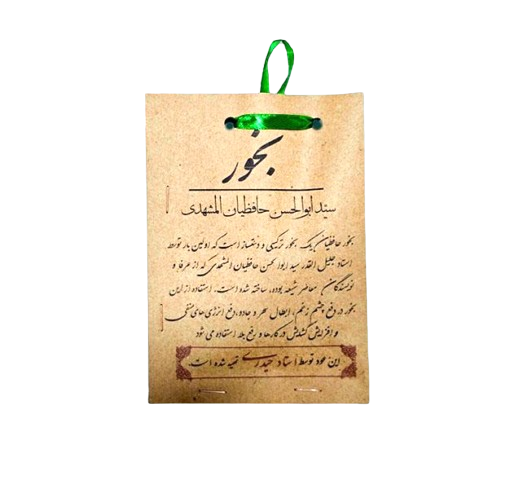 بخور
سید ابوالحسن حافظیان المشهدی
بخور حافظیان یک بخور ترکیبی و دستساز است که اولین بار توسط
استاد جلیل القدر سید ابوالحسن حافظیان المشهدی که از عرفا و
نویسندگان معاصر شیعه بوده، ساخته شده است. استفاده از این
بخور در دفع چشم زخم، ابطال سحر و جادو، دفع انرژی های منفی
و افزایش گشایش در کارها و رفع بلا استفاده می شود
این عود توسط استاد حیدری تهیه شده است.